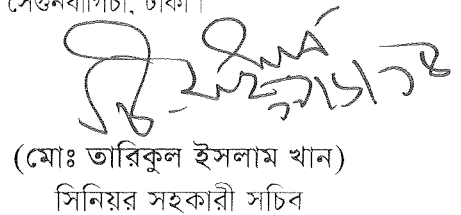 সেগুনবাগিচা, ঢাকা।
(মোঃ তারিকুল ইসলাম খান)
সিনিয়র সহকারী সচিব